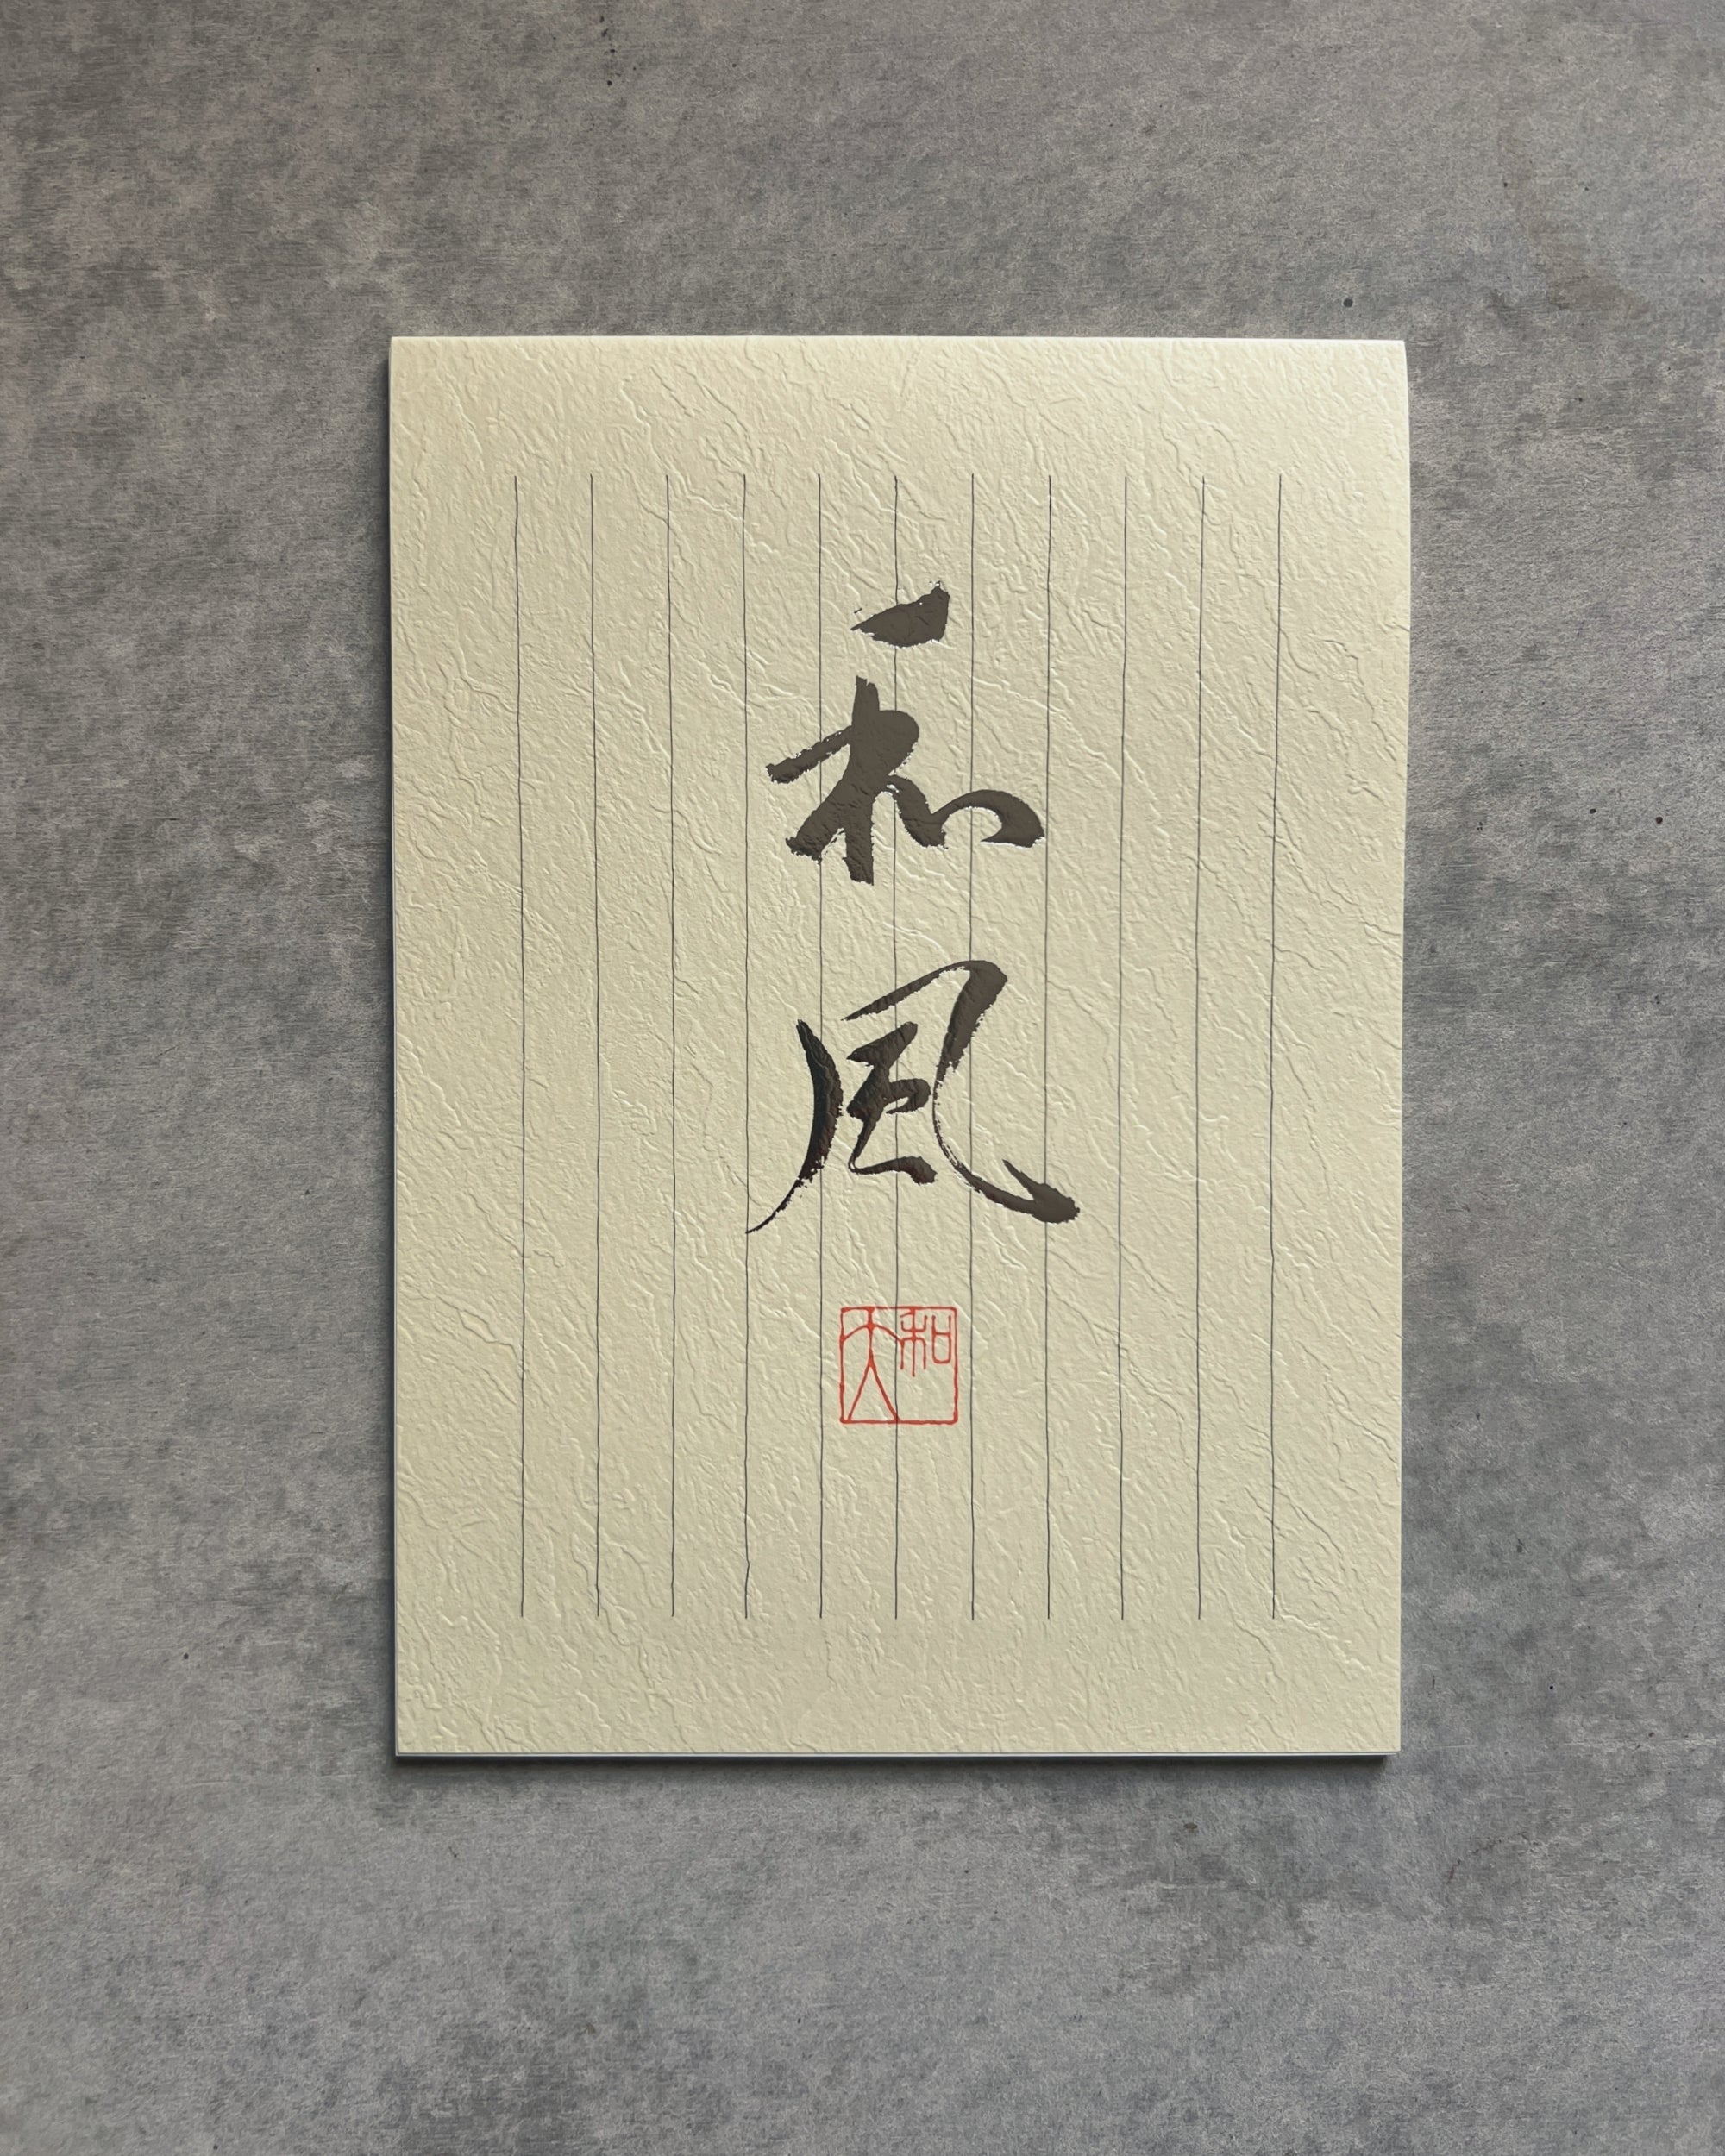 和風
和
大